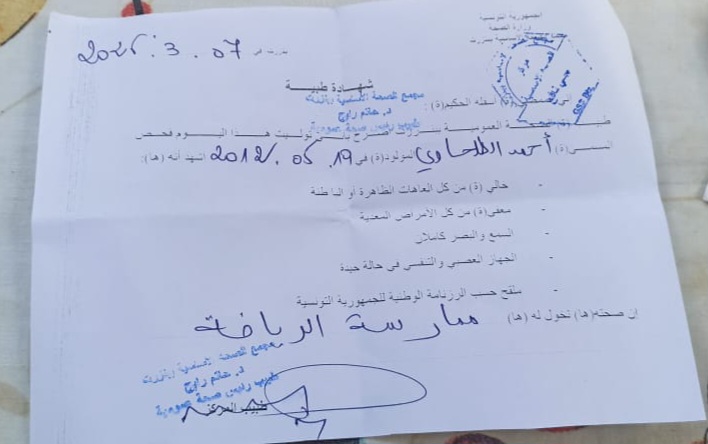 الجمهورية التونسية
وزارة الصحة
بنزرت في 07 . 3 . 2025
شهادة طبية
مجمع الصحة الأساسية ببنزرت
د. حاتم راوح
طبيب رئيس صحة عمومية
إني الممضي(ة) أسفله الحكيم(ة) :
طبيب الصحة العمومية ببنزرت أصرح بأنني توليت هذا اليوم فحص
المسمى(ة) أحمد الطلحاوي المولود(ة) في 19 . 05 . 2012 أشهد أنه (ها):
- خالي (ة) من كل العاهات الظاهرة أو الباطنة
- معفى(ة) من كل الأمراض المعدية
- السمع والبصر كاملان
- الجهاز العصبي والتنفسي في حالة جيدة
- ملقح حسب الرزنامة الوطنية للجمهورية التونسية
إن صحته(ها) تخول له (ها) ممارسة الرياضة
مجمع الصحة الأساسية ببنزرت
د. حاتم راوح
طبيب رئيس صحة عمومية
طبيب المركز